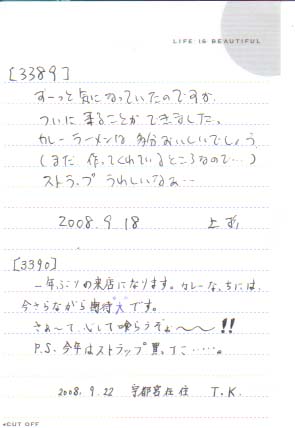 LIFE IS BEAUTIFUL
[3389]
ずーっと気になっていたのですが、
ついに来ることができました。
カレーラーメンは多分おいしいでしょう
(まだ作ってくれているところなので…)
ストラップうれしいなぁ…
2008.9.18 上
[3390]
一年ぶりの来店になります。カレーな、ちには、
今さらながら期待大です。
さぁ〜て、心して喰らうぞぉ〜〜!!
P.S. 今年はストラップ買ってこ……。
2008.9.22 宇都宮在住 T.K.
CUT OFF